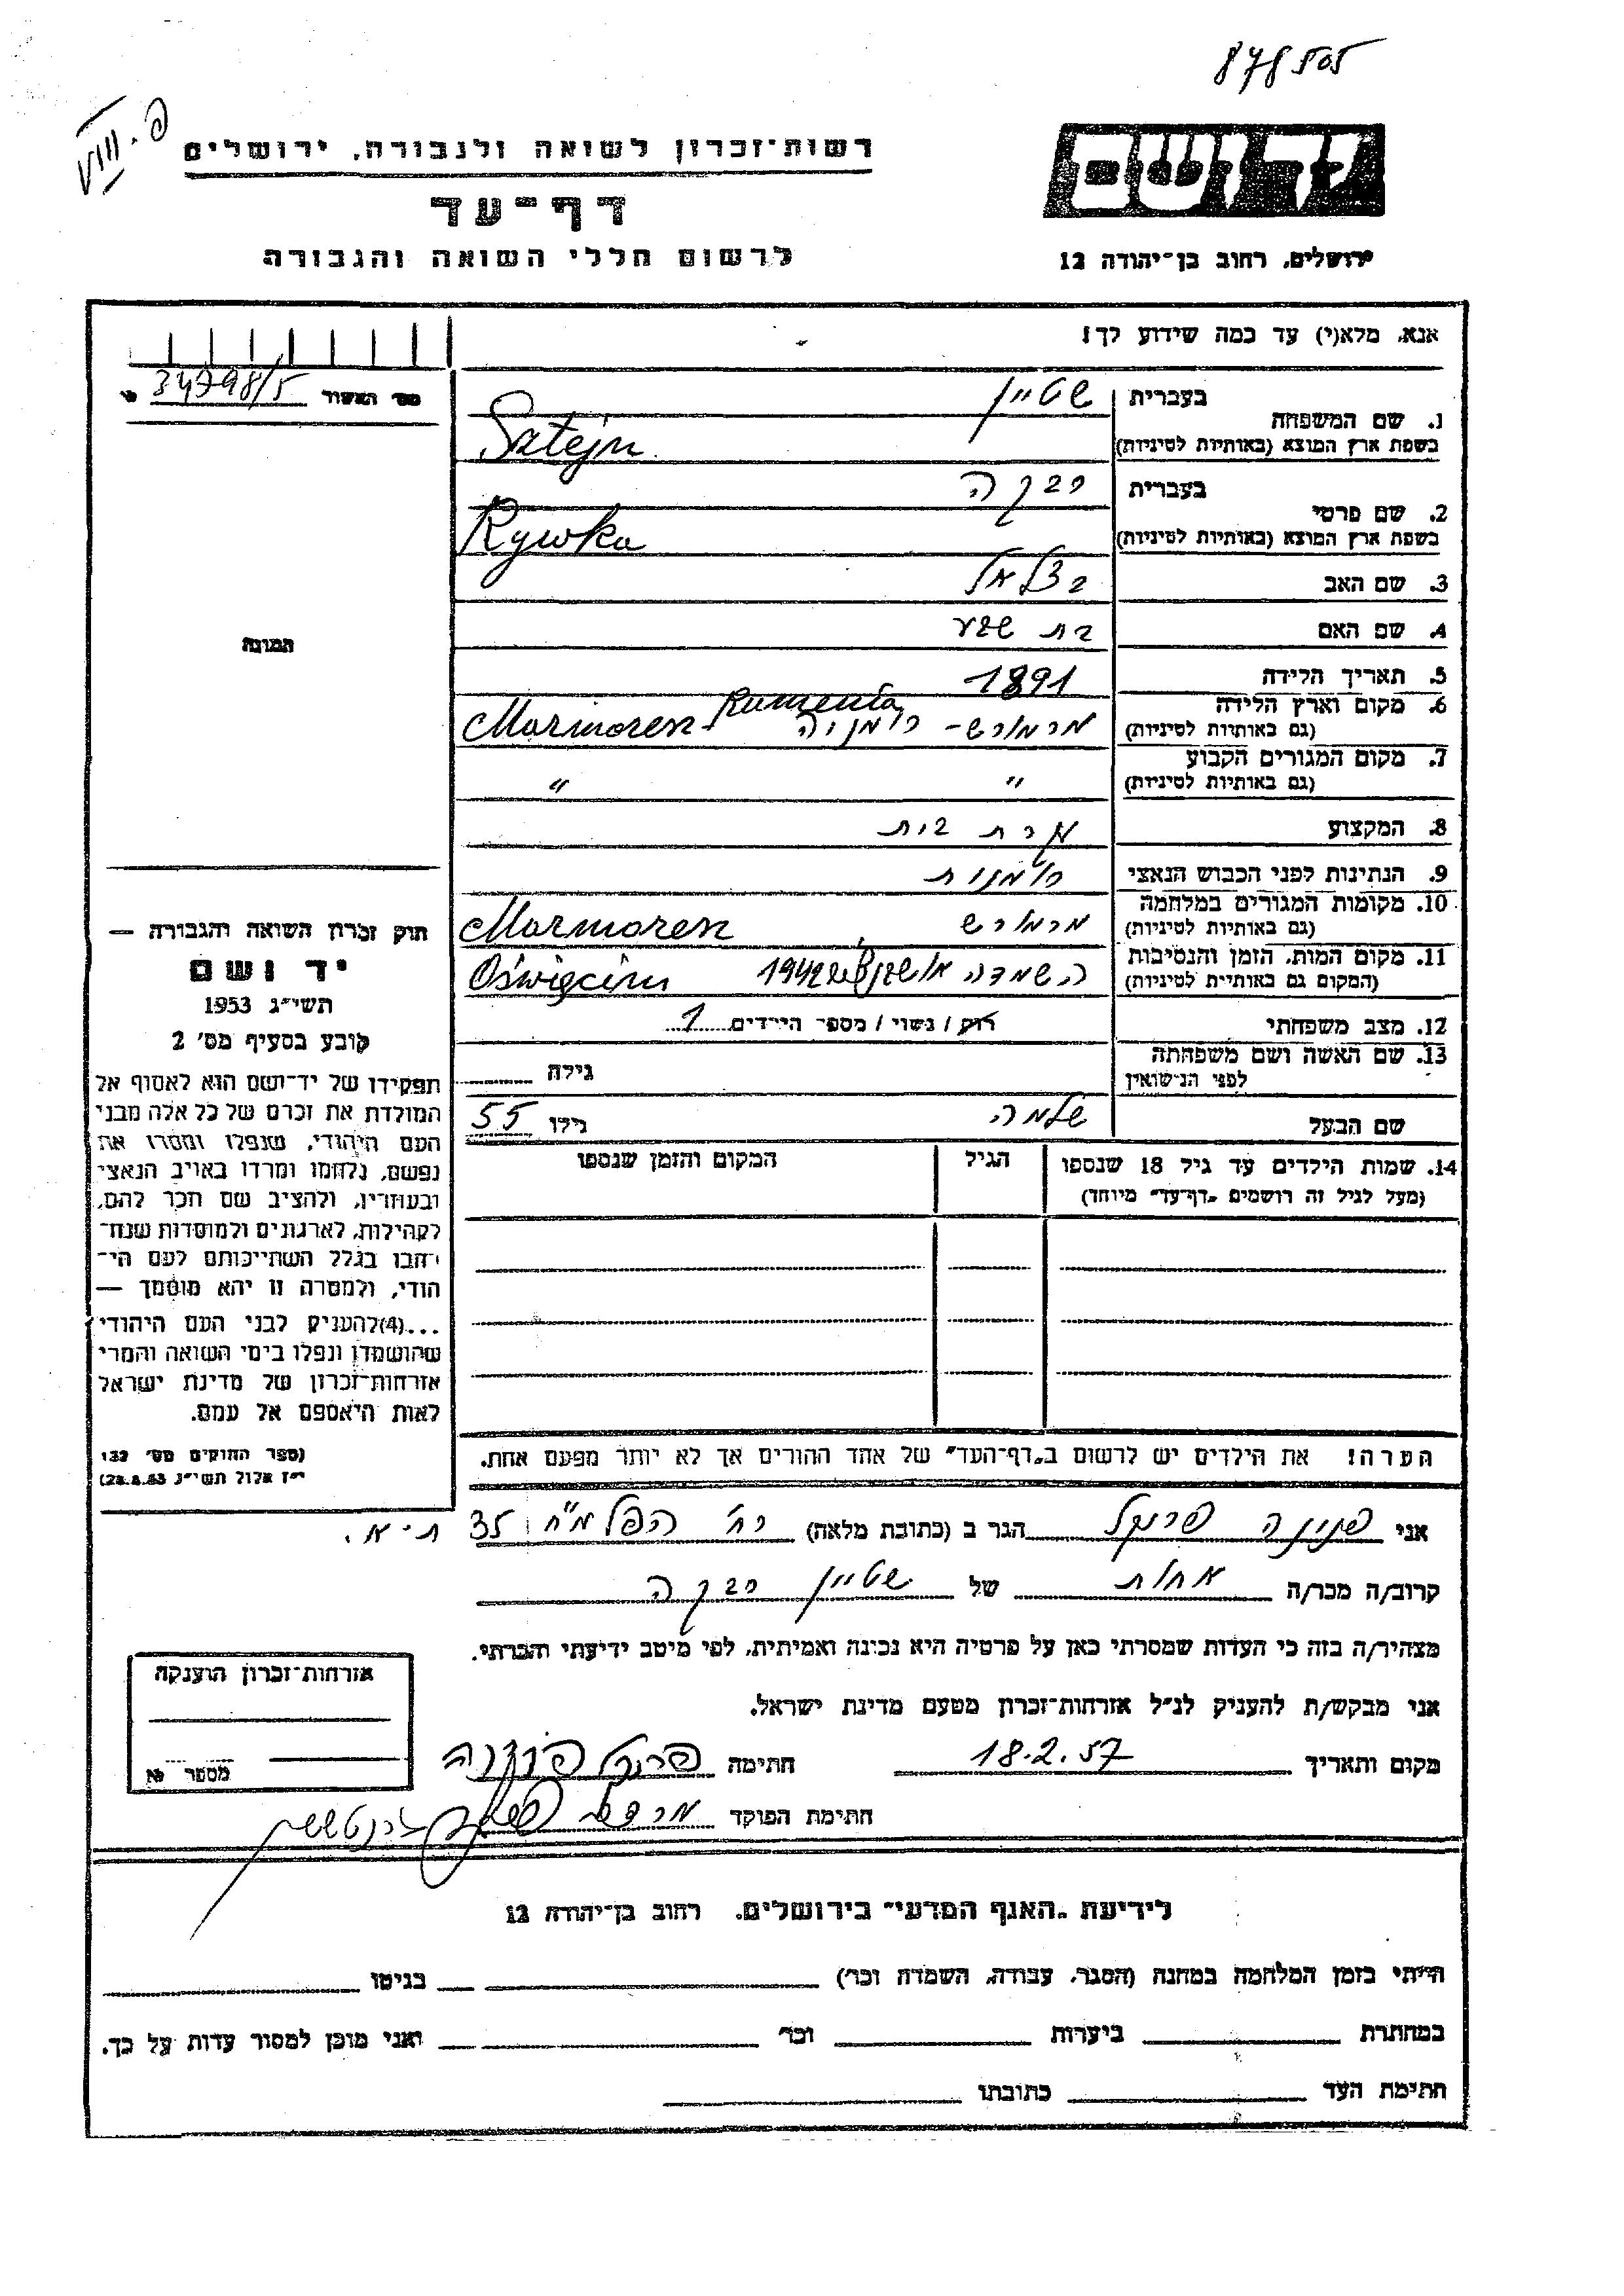 878505
VIII. פ
רשות־זכרון לשואה ולגבורה, ירושלים
דף־עד
לרשום חללי השואה והגבורה
יד ושם
ירושלים, רחוב בן־יהודה 12
אנא, מלא(י) עד כמה שידוע לך!
מס׳ האשור 34798/5
1. שם המשפחה בעברית שטיין
בשפת ארץ המוצא (באותיות לטיניות) Sztejn
2. שם פרטי בעברית רבקה
בשפת ארץ המוצא (באותיות לטיניות) Rywka
3. שם האב בצלאל
4. שם האם בת שבע
5. תאריך הלידה 1891
6. מקום וארץ הלידה (גם באותיות לטיניות) מרמורש - רומניה Marmoresz Rumenia
7. מקום המגורים הקבוע (גם באותיות לטיניות) " "
8. המקצוע עקרת בית
9. הנתינות לפני הכבוש הנאצי רומנית
10. מקומות המגורים במלחמה (גם באותיות לטיניות) מרמורש Marmoresz
11. מקום המות, הזמן והנסיבות (המקום גם באותיות לטיניות) השמדה 1942 Oświęcim
12. מצב משפחתי רווק / נשוי / מספר הילדים 1
13. שם האשה ושם משפחתה לפני הנישואין גילה
שם הבעל שלמה גילו 55
14. שמות הילדים עד גיל 18 שנספו הגיל המקום והזמן שנספו
(מעל לגיל זה רושמים "דף־עד" מיוחד)
הערה! את הילדים יש לרשום ב"דף־העד" של אחד ההורים אך לא יותר מפעם אחת.
התמונה
חוק זכרון השואה והגבורה —
יד ושם
תשי"ג 1953
קובע בסעיף מס׳ 2
תפקידו של יד־ושם הוא לאסוף אל
המולדת את זכרם של כל אלה מבני
העם היהודי, שנפלו ומסרו את
נפשם, נלחמו ומרדו באויב הנאצי
ובעוזריו, ולהציב שם וזכר להם,
לקהילות, לארגונים ולמוסדות שנח־
רבו בגלל השתייכותם לעם הי־
הודי, ולמטרה זו יהא מוסמך —
...(4) להעניק לבני העם היהודי
שהושמדו ונפלו בימי השואה והמרי
אזרחות־זכרון של מדינת ישראל
לאות היאספם אל עמם.
(ספר החוקים מס׳ 132
י"ז אלול תשי"ג 28.8.53)
אני פנינה פרנקל הגר ב (כתובת מלאה) רח׳ הפלמ"ח 35 ת"א.
קרוב/ה מכר/ה אחות של שטיין רבקה
מצהיר/ה בזה כי העדות שמסרתי כאן על פרטיה היא נכונה ואמיתית, לפי מיטב ידיעתי והכרתי.
אני מבקש/ת להעניק לנ"ל אזרחות־זכרון מטעם מדינת ישראל.
מקום ותאריך 18.2.57 חתימה פרנקל פנינה
חתימת הפוקד
אזרחות־זכרון הוענקה
מספר
לידיעת "האגף המדעי" בירושלים, רחוב בן־יהודה 12
הייתי בזמן המלחמה במחנה (הסגר, עבודה, השמדה וכו׳) בגיטו
במחתרת ביערות וכו׳ ואני מוכן למסור עדות על כך.
חתימת העד כתובתו